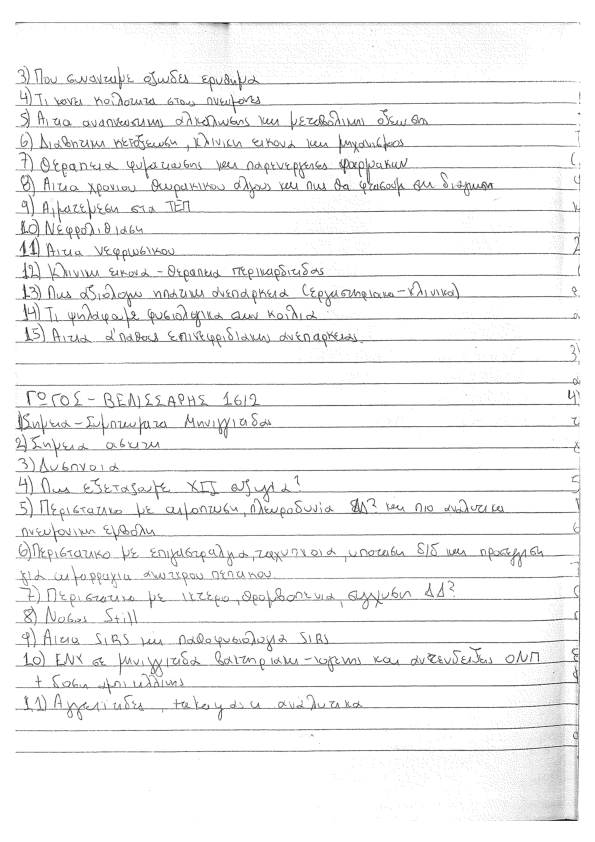 3) Που συνανταμε οζωδες ερυθημα
4) Τι κανει κοιλοτητα στους πνευμονες
5) Αιτια αναπνευστικης αλκαλωσης και μεταβολικης οξεωσης
6) Διαβητικη κετοξεωση, κλινικη εικονα και μηχανισμος
7) Θεραπεια φυματιωσης και παρενεργειες φαρμακων
8) Αιτια χρονιου θωρακικου αλγους και πως θα φτασουμε στη διαγνωση
9) Αιματεμεση στα ΤΕΠ
10) Νεφρολιθιαση
11) Αιτια νεφρωσικου
12) Κλινικη εικονα - θεραπεια περικαρδιτιδας
13) Πως αξιολογω ηπατικη ανεπαρκεια (εργαστηριακα - κλινικα)
14) Τι ψηλαφαμε φυσιολογικα στην κοιλια
15) Αιτια α'παθους επινεφριδιακης ανεπαρκειας.
ΓΩΓΟΣ - ΒΕΛΙΣΣΑΡΗΣ 16/2
1) Σημεια - Συμπτωματα μηνιγγιτιδας
2) Σημεια ασκιτη
3) Δυσπνοια
4) Πως εξεταζουμε ΧΙΙ συζυγια?
5) Περιστατικο με αιμοπτυση, πλευροδυνια ΔΔ? και πιο αναλυτικα
πνευμονικη εμβολη
6) Περιστατικο με επιγαστραλγια, ταχυπνοια, υποταση Δ/Δ και προσεγγιση
για αιμορραγια ανωτερου πεπτικου.
7) Περιστατικο με ικτερο, θρομβοπενια, συγχυση ΔΔ?
8) Νοσος Still
9) Αιτια SIRS και παθοφυσιολογια SIRS
10) ΕΝΥ σε μηνιγγιτιδα βακτηριακη - ιογενης και αντενδειξεις ΟΝΠ
+ δοση αμπικιλλινης
11) Αγγειιτιδες, takayasu αναλυτικα